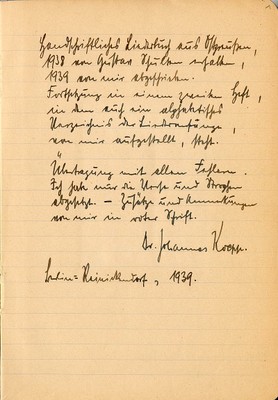 Handschriftliches Liederbuch aus Ostpreußen,
1938 von Gustav Schulten erhalten,
1939 von mir abgeschrieben.
Fortsetzung in einem zweiten Heft,
in dem auch ein alphabetisches
Verzeichnis der Liederanfänge,
von mir aufgestellt, steht.
Übertragung mit allen Fehlern.
Ich habe nur die Verse und Strophen
abgesetzt. – Zusätze und Anmerkungen
von mir in roter Schrift.
Dr. Johannes Koepp.
Berlin=Reinickendorf, 1939.